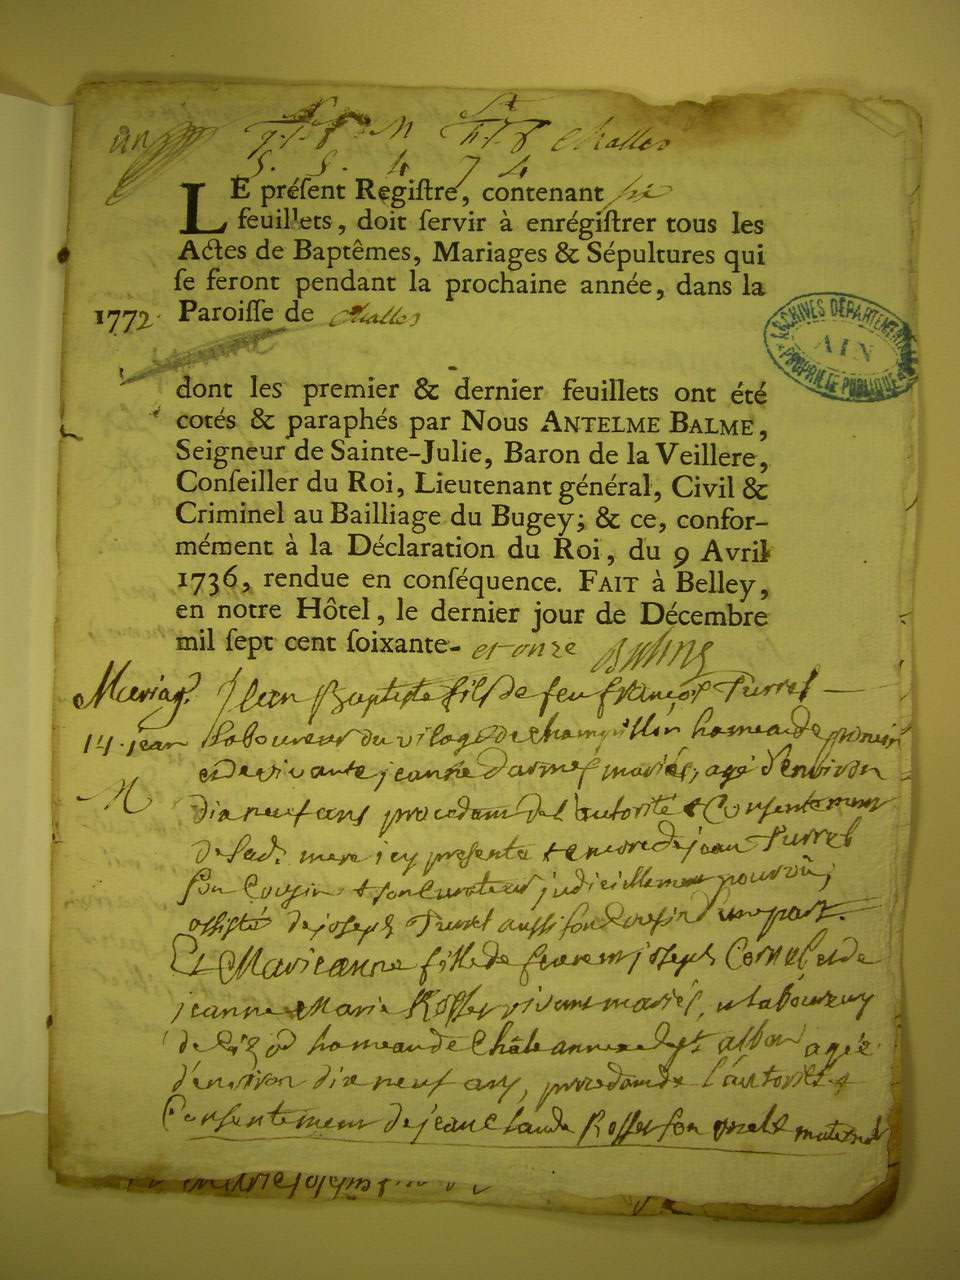 Challes
5. 5. 4 7 4
LE préſent Regiſtre, contenant six
feuillets, doit ſervir à enrégiſtrer tous les
Actes de Baptêmes, Mariages & Sépultures qui
ſe feront pendant la prochaine année, dans la
1772. Paroiſſe de Challes
ARCHIVES DÉPARTEMENTALES
AIN
PROPRIÉTÉ PUBLIQUE
dont les premier & dernier feuillets ont été
cotés & paraphés par Nous ANTELME BALME,
Seigneur de Sainte-Julie, Baron de la Veillere,
Conſeiller du Roi, Lieutenant général, Civil &
Criminel au Bailliage du Bugey; & ce, confor-
mément à la Déclaration du Roi, du 9 Avril
1736, rendue en conſéquence. FAIT à Belley,
en notre Hôtel, le dernier jour de Décembre
mil ſept cent ſoixante- et onze Balme
Mariag. Jean Baptiste fils de feu françois Turrel
14. jean laboureur du vilage de hameau de
et de vivante jeanne mariés, agé d'environ
dix neuf ans procedant de l'autorité & Consentement
de Sad. mere icy presente & encore de jean Turrel
son Cousin & son Curateur judiciellement pourvû,
assisté de joseph Turrel aussi son Cousin d'une part.
Et Marieanne fille de feu joseph et de
jeanne Marie Rosset vivant mariés,
de hameau de agée
d'environ dix neuf ans, procedant de l'autorité &
Consentement de jean Claude Rosset son oncle maternel